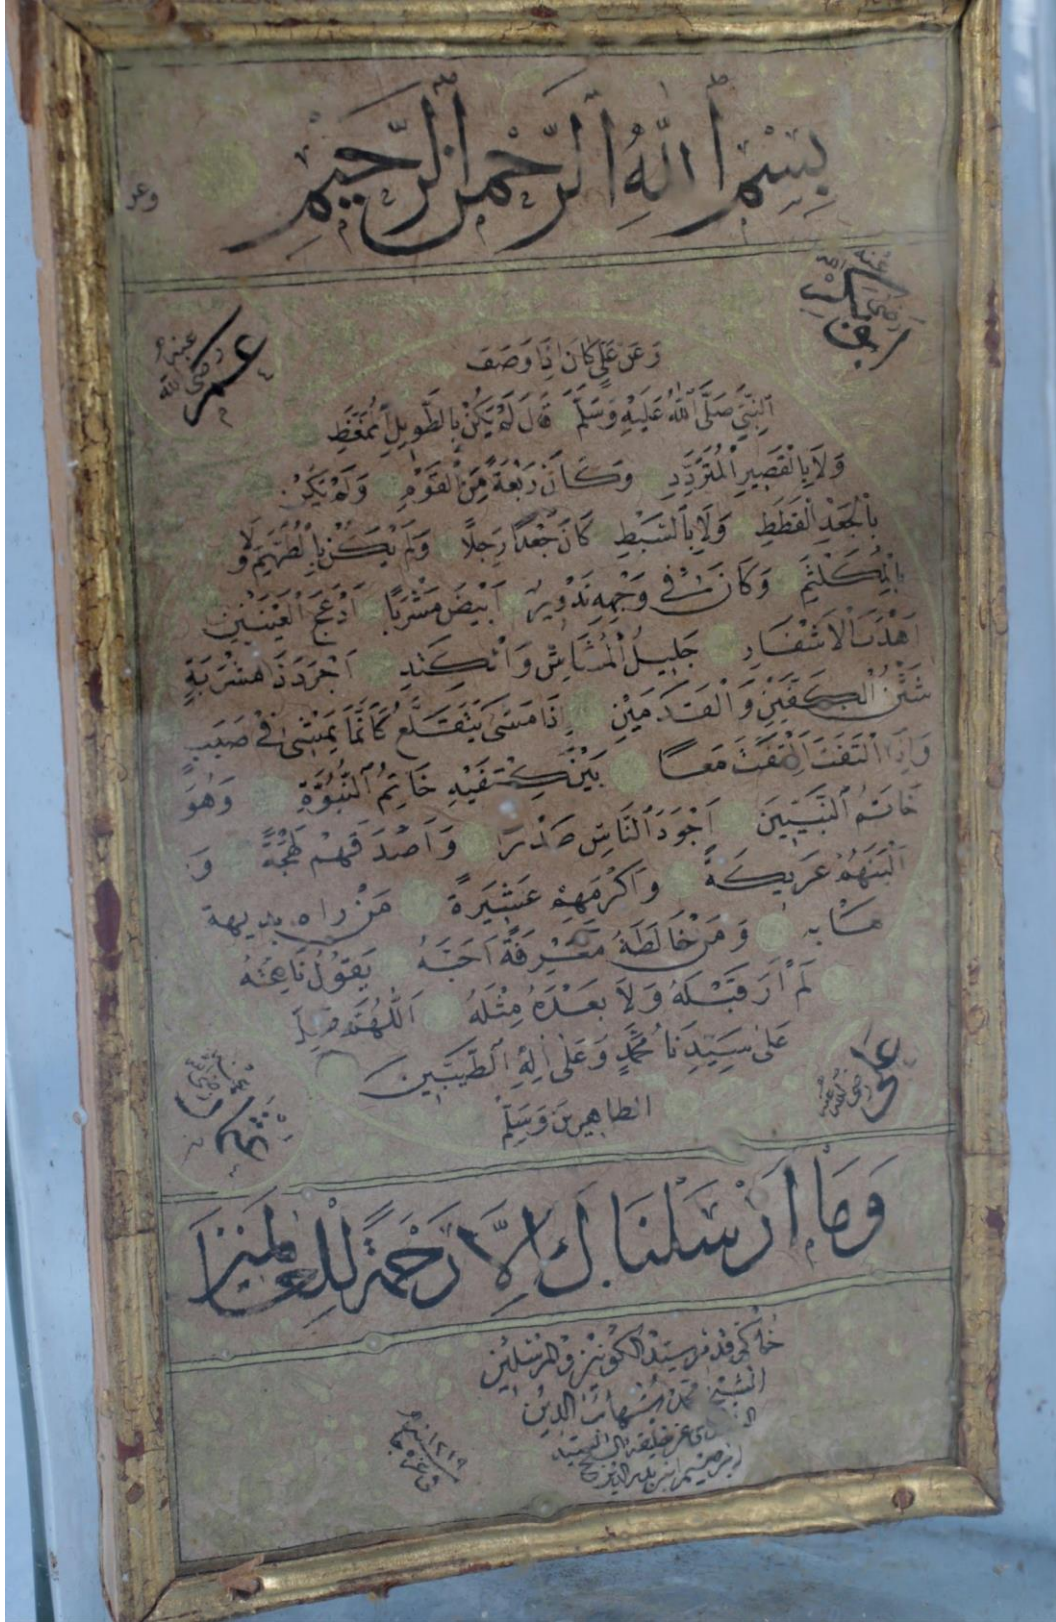 بِسْمِ اللهِ الرَّحْمنِ الرَّحِيمِ
وعن
ابوبكر رضى الله عنه
عمر رضى الله عنه
وَعَنْ عَلِىٍّ كَانَ اِذَا وَصَفَ
النَّبِىَّ صَلَّى اللهُ عَلَيْهِ وَسَلَّمَ قَالَ لَمْ يَكُنْ بِالطَّوِيلِ الْمُمَّغَطِ
وَلَا بِالْقَصِيرِ الْمُتَرَدِّدِ وَكَانَ رَبْعَةً مِنَ الْقَوْمِ وَلَمْ يَكُنْ
بِالْجَعْدِ الْقَطَطِ وَلَا بِالسَّبْطِ كَانَ جَعْدًا رَجِلًا وَلَمْ يَكُنْ بِالْمُطَهَّمِ وَلَا
بِالْمُكَلْثَمِ وَكَانَ فِى وَجْهِهِ تَدْوِيرٌ اَبْيَضُ مُشْرَبًا اَدْعَجُ الْعَيْنَيْنِ
اَهْدَبُ الْاَشْفَارِ جَلِيلُ الْمُشَاشِ وَالْكَتَدِ اَجْرَدُ ذُو مَسْرُبَةٍ
شَثْنُ الْكَفَّيْنِ وَالْقَدَمَيْنِ اِذَا مَشَى يَتَقَلَّعُ كَاَنَّمَا يَمْشِى فِى صَبَبٍ
وَاِذَا الْتَفَتَ اِلْتَفَتَ مَعًا بَيْنَ كَتِفَيْهِ خَاتِمُ النُّبُوَّةِ وَهُوَ
خَاتَمُ النَّبِيِّينَ اَجْوَدُ النَّاسِ صَدْرًا وَاَصْدَقُهُمْ لَهْجَةً وَ
اَلْيَنُهُمْ عَرِيكَةً وَاَكْرَمُهُمْ عَشِيرَةً مَنْ رَاهُ بديهة
هَابَهُ وَمَنْ خَالَطَهُ مَعْرِفَةً اَحَبَّهُ يَقُولُ نَاعِتُهُ
لَمْ اَرَ قَبْلَهُ وَلَا بَعْدَهُ مِثْلَهُ اَللّٰهُمَّ صَلِّ
عَلٰى سَيِّدِنَا مُحَمَّدٍ وَعَلٰى اٰلِهِ الطَّيِّبِينَ
الطاهِرِينَ وَسَلِّمْ
عثمان رضى الله عنه
على رضى الله عنه
وَمَا اَرْسَلْنَاكَ اِلَّا رَحْمَةً لِلْعَالَمِينَ
سَيِّدِ الْكَوْنَيْنِ وَالْمُرْسَلِينَ
الشيخ محمد شهاب الدين
سنه ١٢١٩